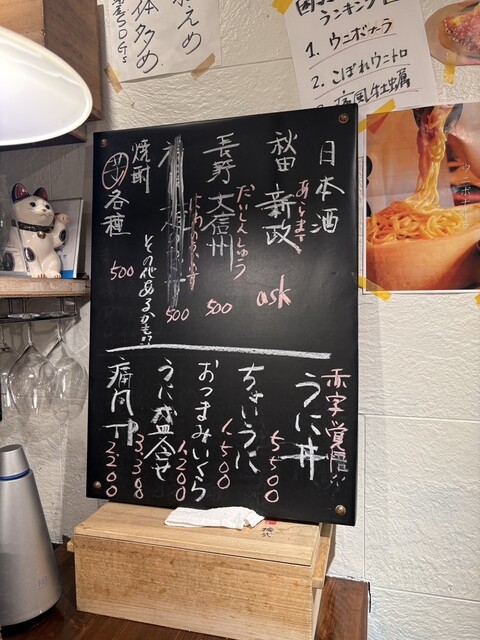 体多め
ランキング
1. ウニボナーラ
2. こぼれウニトロ
日本酒
秋田 新政 ask
あらまさ
長野 大信州 500
だいしんしゅう
500
その他あるかも!!
焼酎
各種 500
赤字覚悟!!
うに丼 5500
ちょいうに 1,500
おつまみいくら 1,200
うに盛合せ 3,300
痛風TP 2200